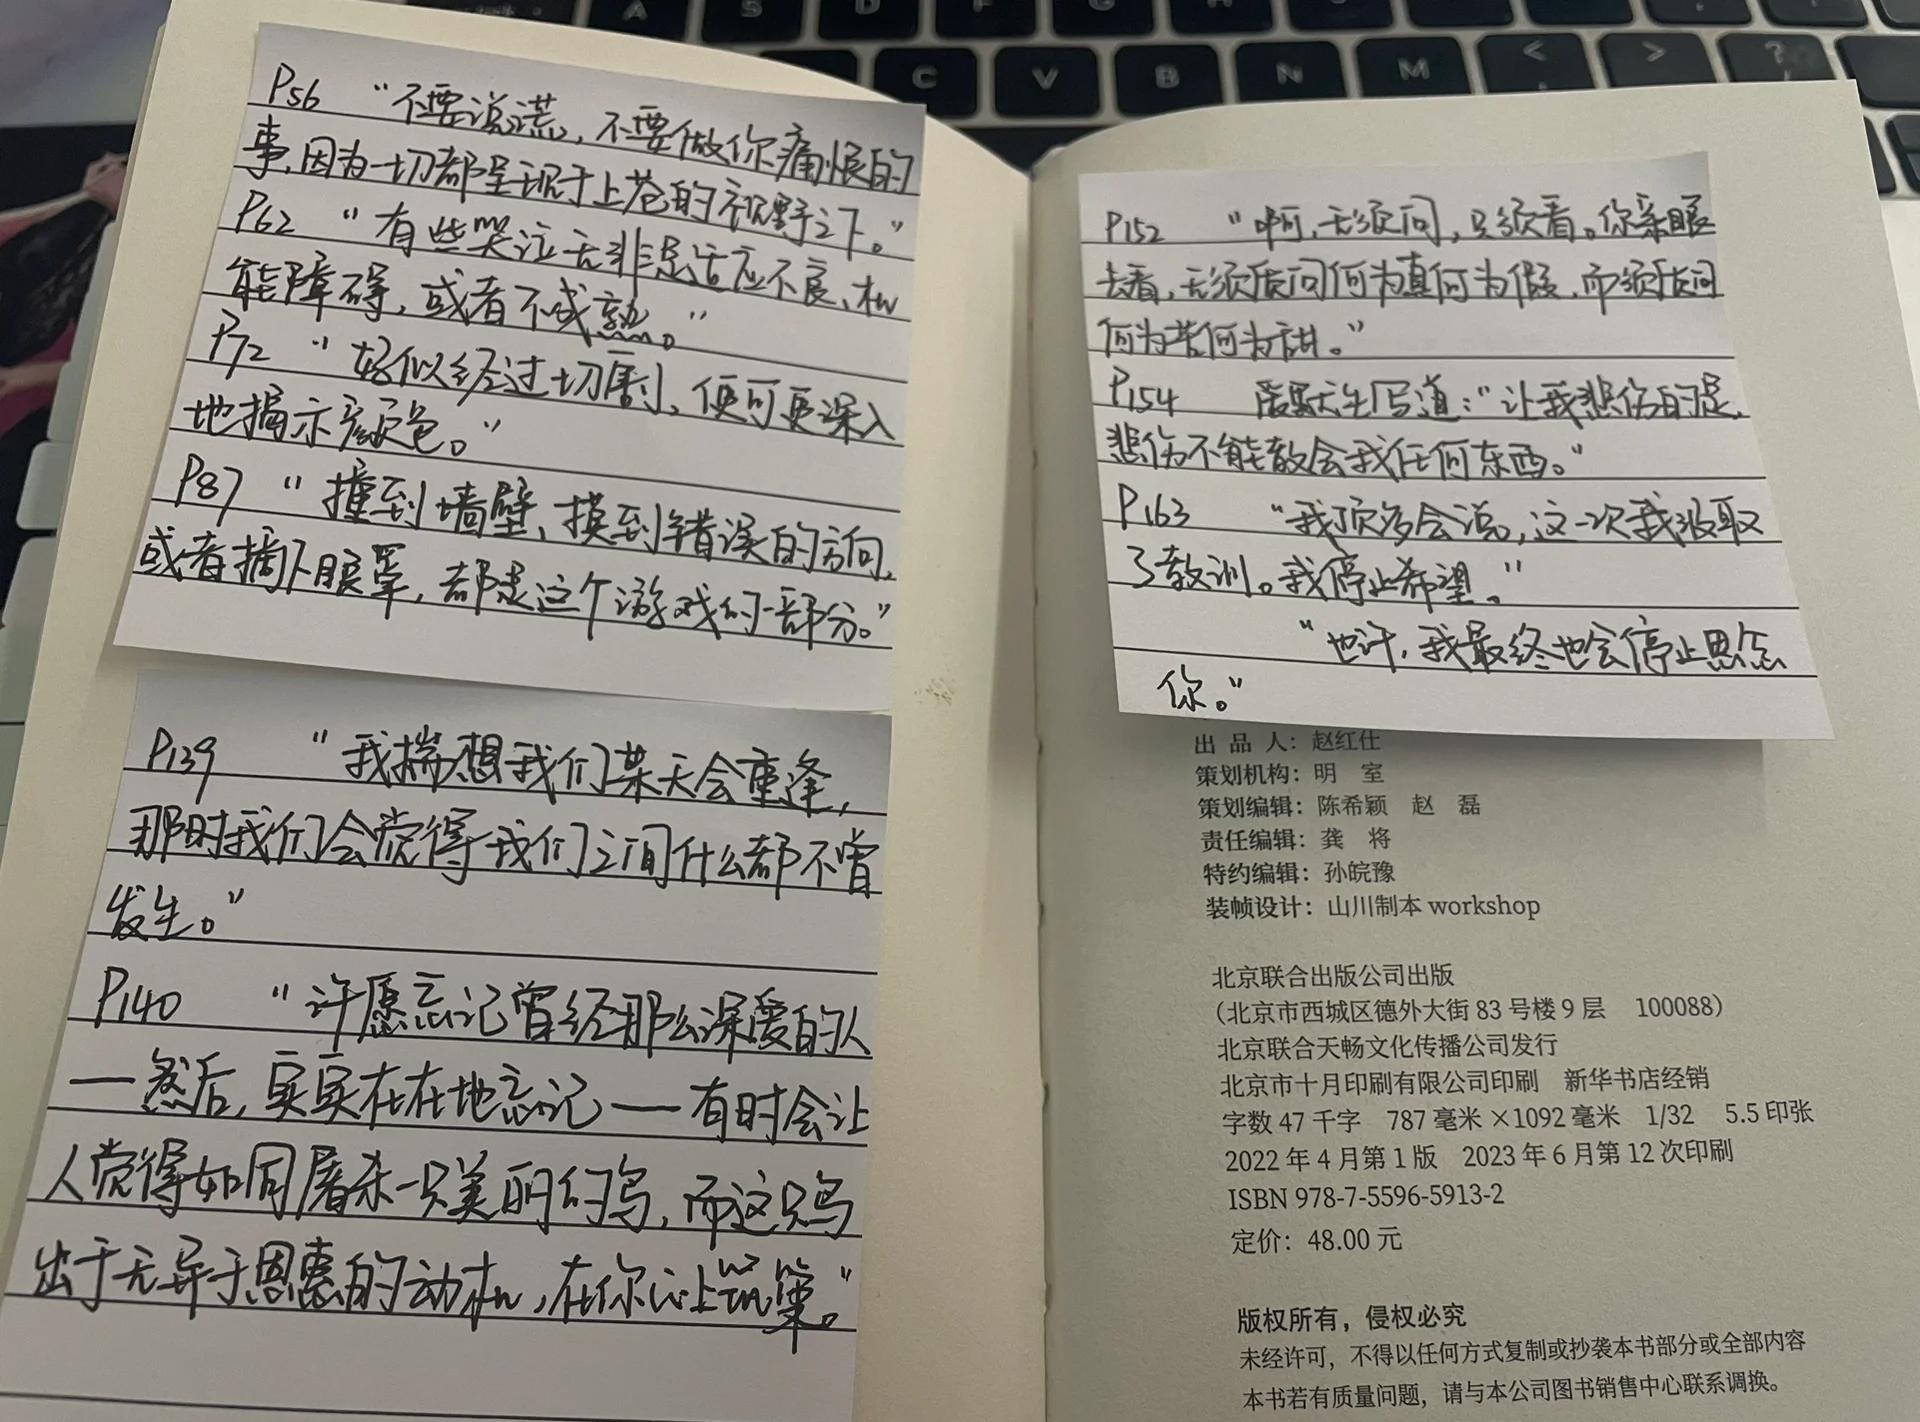 A S D F G H
C V B N M < >
?
P56 “不要说谎,不要做你痛恨的
事,因为一切都呈现于上苍的视野之下。”
P62 “有些哭泣无非是适应不良、机
能障碍,或者不成熟。”
P72 “好似经过切割,便可更深入
地揭示颜色。”
P87 “撞到墙壁,摸到错误的方向,
或者摘下眼罩,都是这个游戏的一部分。”
P139 “我揣想我们某天会重逢,
那时我们会觉得我们之间什么都不曾
发生。”
P140 “许愿忘记曾经那么深爱的人
——然后,实实在在地忘记——有时会让
人觉得如同屠杀一只美丽的鸟,而这只鸟
出于无异于恩惠的动机,在你心上筑巢。”
P152 “啊,无须问,只须看。你亲眼
去看,无须质问何为真何为假,而须质问
何为苦何为甜。”
P154 爱默生写道:“让我悲伤的是,
悲伤不能教会我任何东西。”
P163 “我顶多会说,这一次我汲取
了教训。我停止希望。”
“也许,我最终也会停止思念
你。”
出品人:赵红仕
策划机构:明 室
策划编辑:陈希颖 赵 磊
责任编辑:龚 将
特约编辑:孙皖豫
装帧设计:山川制本 workshop
北京联合出版公司出版
(北京市西城区德外大街 83 号楼 9 层 100088)
北京联合天畅文化传播公司发行
北京市十月印刷有限公司印刷 新华书店经销
字数 47 千字 787 毫米 ×1092 毫米 1/32 5.5 印张
2022 年 4 月第 1 版 2023 年 6 月第 12 次印刷
ISBN 978-7-5596-5913-2
定价:48.00 元
版权所有,侵权必究
未经许可,不得以任何方式复制或抄袭本书部分或全部内容
本书若有质量问题,请与本公司图书销售中心联系调换。